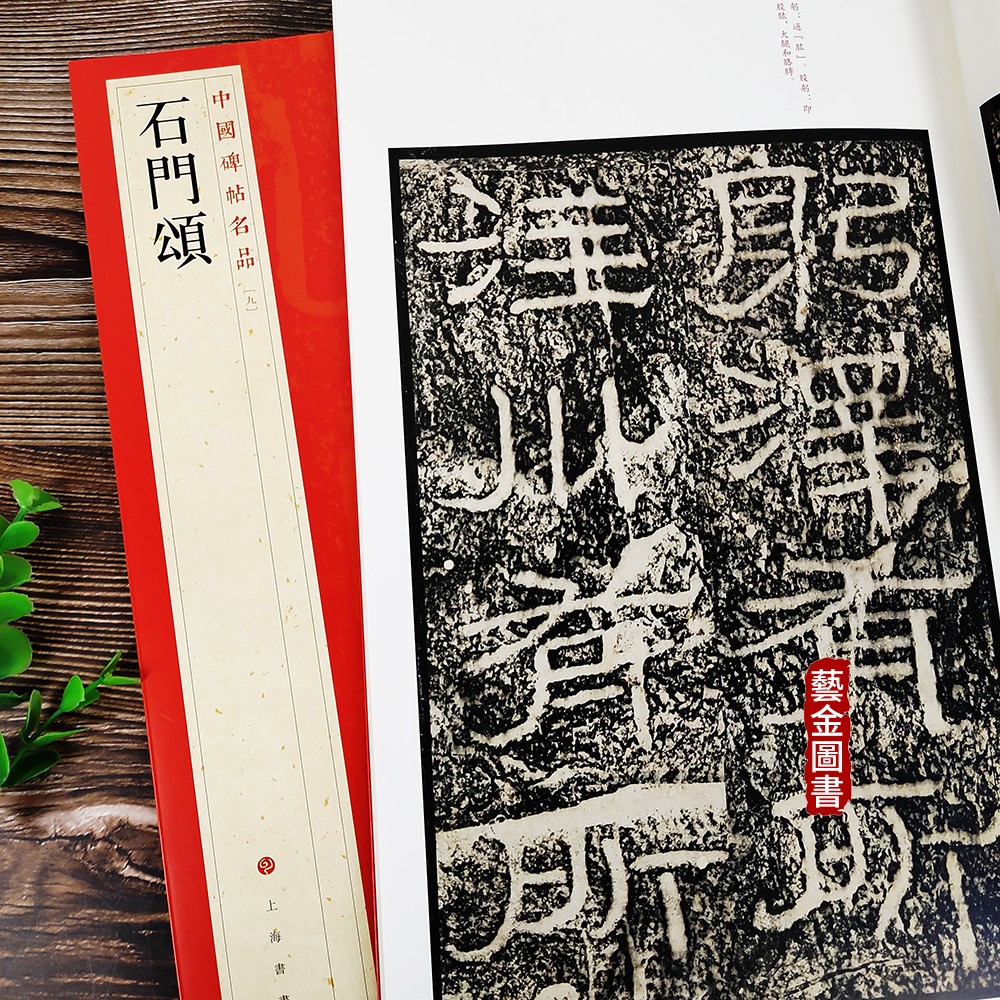 中國碑帖名品
[九]
石門頌
上海書
躬：通「肱」。股躬：即
股肱，大腿和胳膊。
躬澤有所
注川有所
藝金圖書